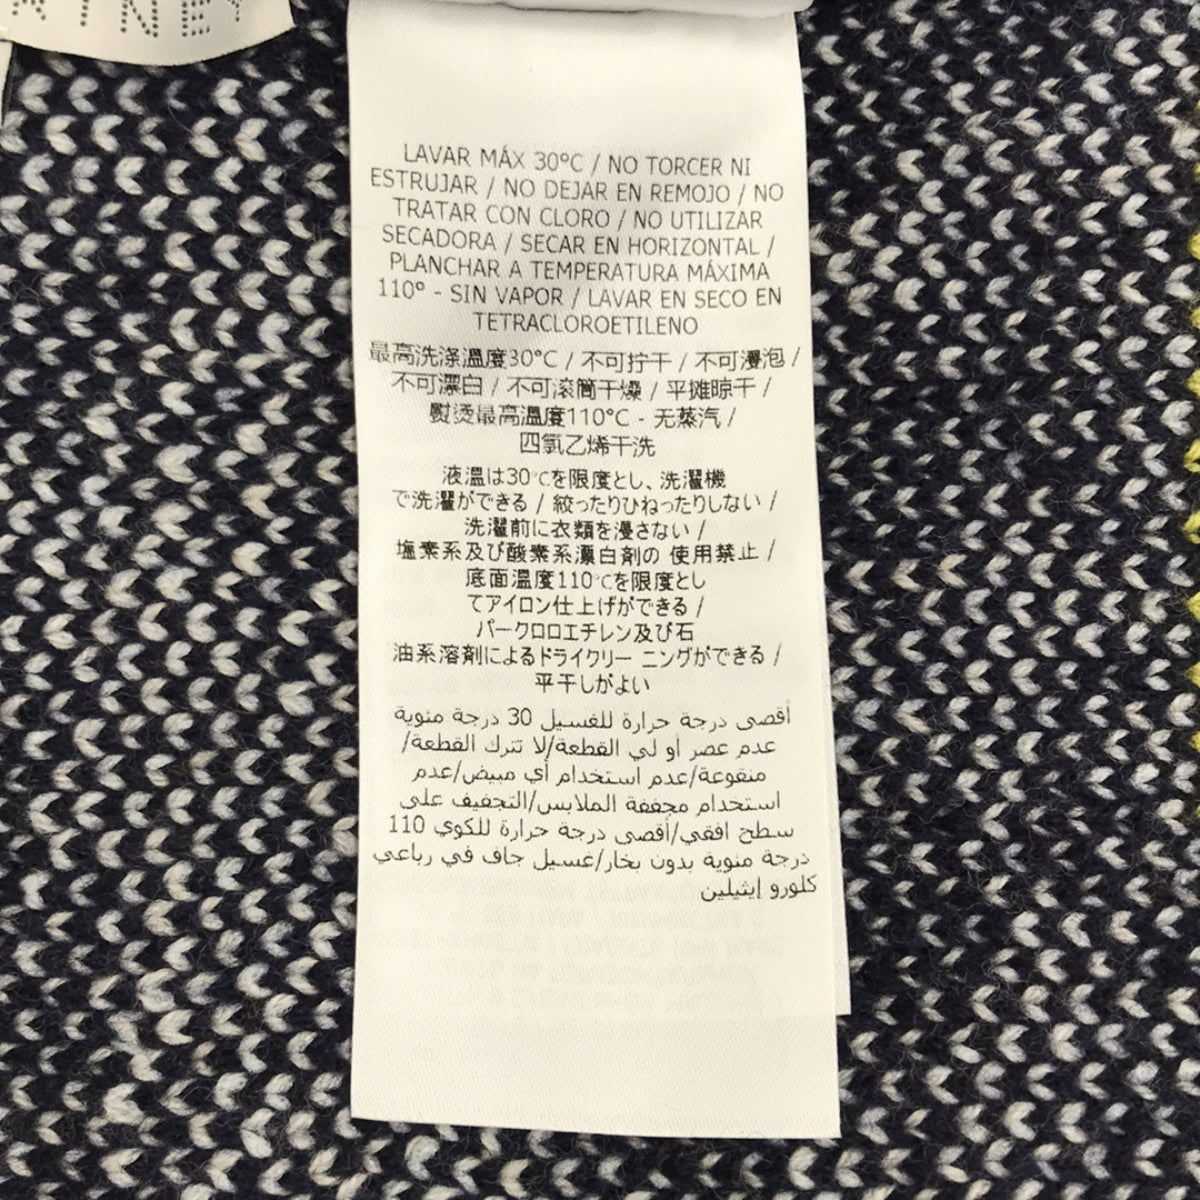 LAVAR MÁX 30°C / NO TORCER NI
ESTRUJAR / NO DEJAR EN REMOJO / NO
TRATAR CON CLORO / NO UTILIZAR
SECADORA / SECAR EN HORIZONTAL /
PLANCHAR A TEMPERATURA MÁXIMA
110° - SIN VAPOR / LAVAR EN SECO EN
TETRACLOROETILENO
最高洗涤溫度30°C / 不可拧干 / 不可漫泡 /
不可漂白 / 不可滚筒干燥 / 平摊晾干 /
熨烫最高溫度110°C - 无蒸汽 /
四氯乙烯干洗
液温は30℃を限度とし、洗濯機
で洗濯ができる / 絞ったりひねったりしない /
洗濯前に衣類を漫さない /
塩素系及び酸素系漂白剤の 使用禁止 /
底面温度110℃を限度とし
てアイロン仕上げができる /
パークロロエチレン及び石
油系溶剤によるドライクリー ニングができる /
平干しがよい
أقصى درجة حرارة للغسيل 30 درجة مئوية
عدم عصر او لي القطعة/لا تترك القطعة/
منقوعة/عدم استخدام أي مبيض/عدم
استخدام مجففة الملابس/التجفيف على
سطح افقي/أقصى درجة حرارة للكوي 110
درجة مئوية بدون بخار/غسيل جاف في رباعي
كلورو إيثيلين